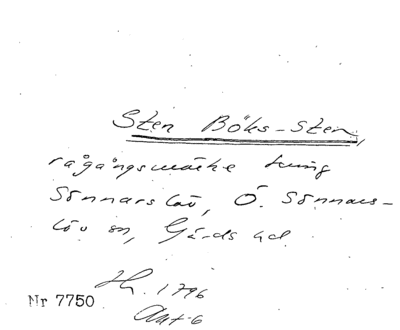 Sten Böks-sten,
rågångsmärke kring
Sönnarslöv, Ö. Sönnars-
löv sn, Gärds hd.
Hh. 1796
Nr 7750
Akt 6